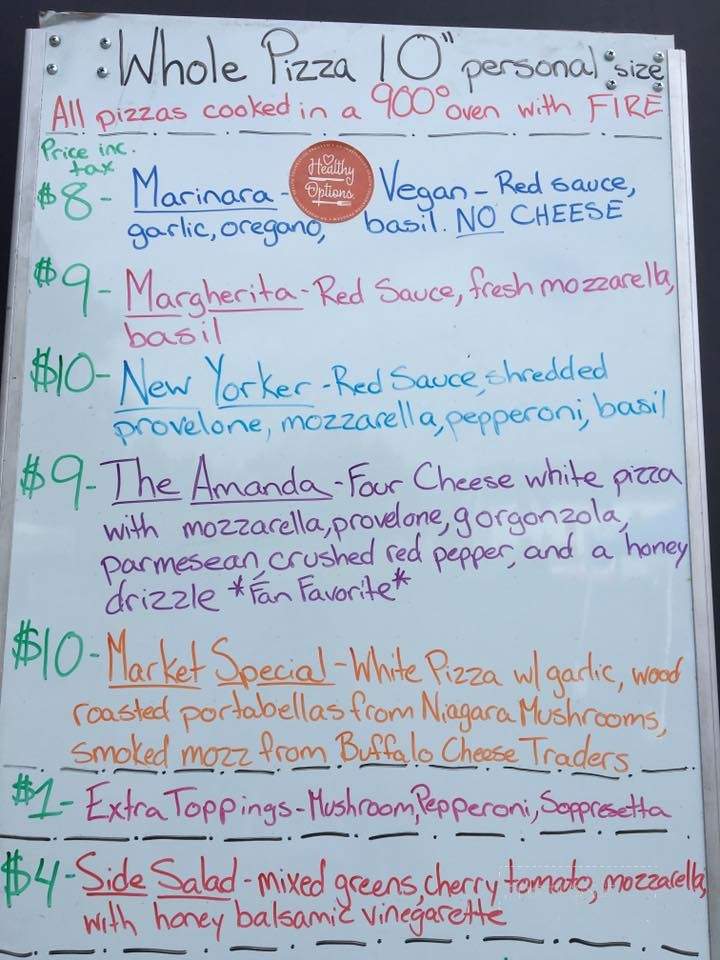 Whole Pizza 10" personal size
All pizzas cooked in a 900° oven with FIRE
Price inc.
tax
$8- Marinara - Healthy Options Vegan - Red sauce,
garlic, oregano, basil. NO CHEESE
$9- Margherita - Red Sauce, fresh mozzarella,
basil
$10- New Yorker - Red Sauce, shredded
provelone, mozzarella, pepperoni, basil
$9- The Amanda - Four Cheese white pizza
with mozzarella, provelone, gorgonzola,
parmesean, crushed red pepper, and a honey
drizzle *Fan Favorite*
$10- Market Special - White Pizza w/ garlic, wood
roasted portabellas from Niagara Mushrooms,
smoked mozz from Buffalo Cheese Traders
$1- Extra Toppings - Mushroom, Pepperoni, Soppresetta
$4- Side Salad - mixed greens, cherry tomato, mozzarella,
with honey balsamic vinegarette